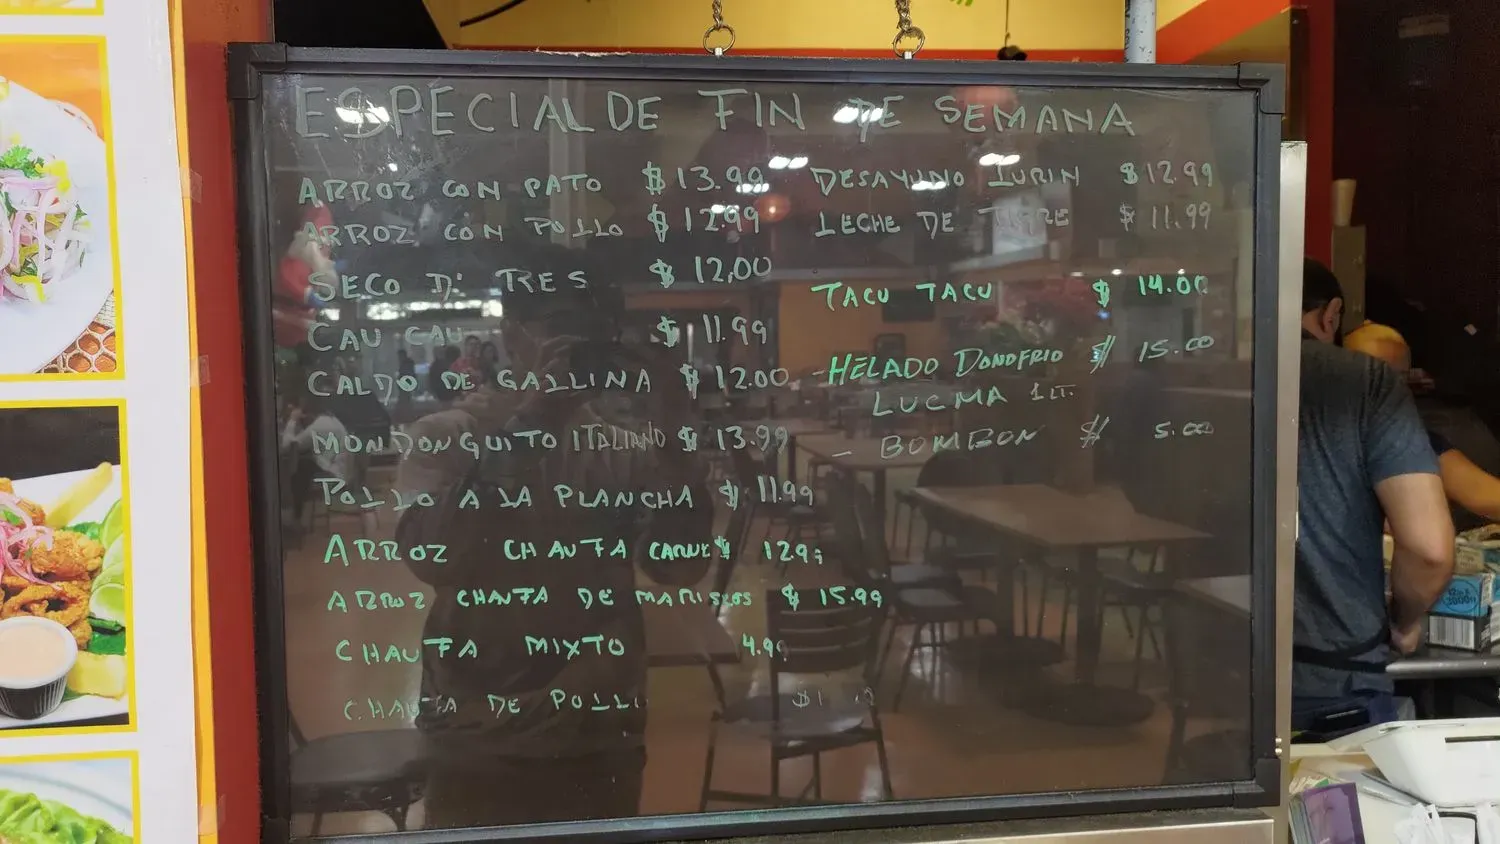 ESPECIAL DE FIN DE SEMANA
ARROZ CON PATO $13.99
ARROZ CON POLLO $12.99
SECO D: TRES $12,00
CAU CAU $11.99
CALDO DE GALLINA $12.00
MONDONGUITO ITALIANO $13.99
POLLO A LA PLANCHA $11.99
ARROZ CHAUFA CARNE $
ARROZ CHAUFA DE MARISCOS $15.99
CHAUFA MIXTO
CHAUFA DE
DESAYUNO LURIN $12.99
LECHE DE TIGRE $11.99
TACU TACU $14.00
-HELADO DONOFRIO $15.00
LUCMA 1LT.
- BOMBON $5.00